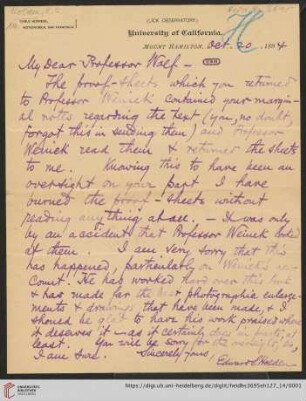 (LICK OBSERVATORY)
University of California.
MOUNT HAMILTON, Oct. 20, 1894
My dear Professor Wolf—
The proof-sheets which you returned
to Professor Weinek contained your margin-
al notes regarding the text (you, no doubt,
forgot this in sending them) and Professor
Weinek read them & returned the sheets
to me. Knowing this to have been an
oversight on your part I have
burned the proof-sheets without
reading anything at all. — It was only
by an accident that Professor Weinek looked
at them. I am very sorry that this
has happened, particularly on Weinek's ac-
count. He has worked hard over this
& has made far the best photographic enlarge-
ments & drawings that have been made, & I
should be glad to have his work praised where
it deserves it — as it certainly does,
least. You will be sorry for the
I am sure. Sincerely yours,
Edward S Holden
https://digi.ub.uni-heidelberg.de/diglit/heidhs3695eh127_14/0001